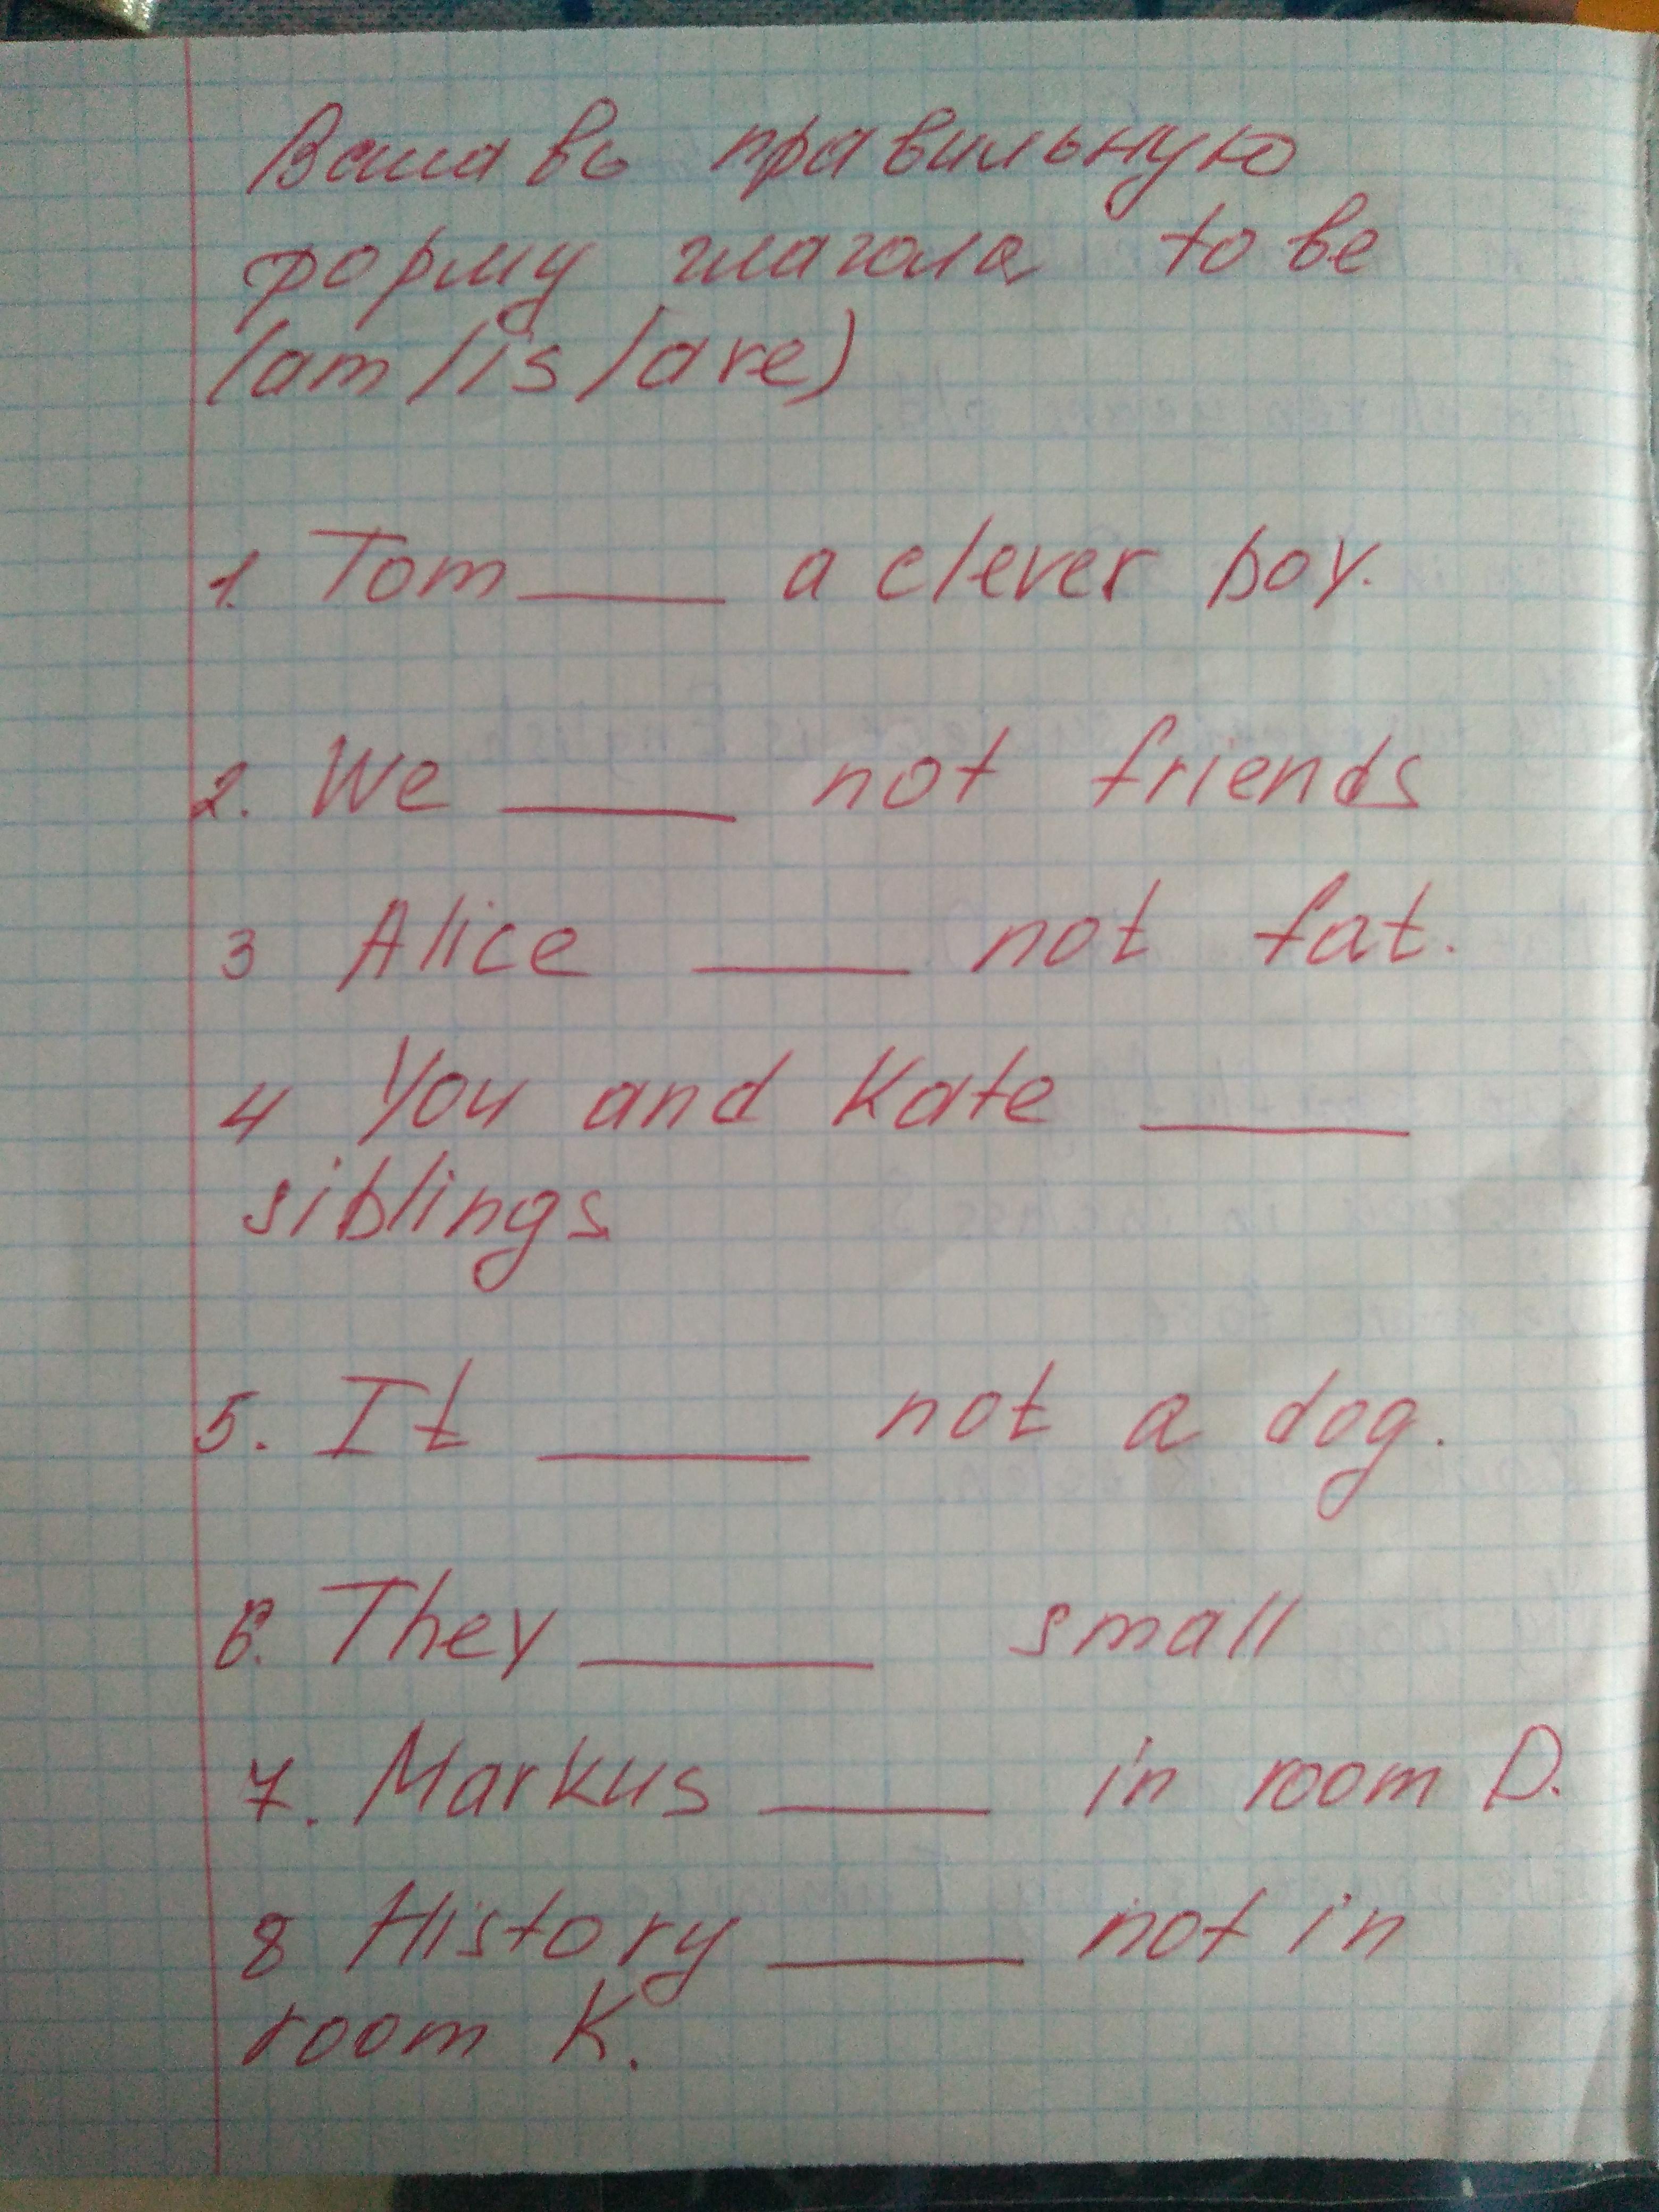 Вставь правильную
форму глагола to be
(am/is/are)
1. Tom ____ a clever boy.
2. We ____ not friends
3 Alice ____ not fat.
4 You and Kate ____
siblings
5. It ____ not a dog.
6. They ____ small
7. Markus ____ in room D.
8 History ____ not in
room K.